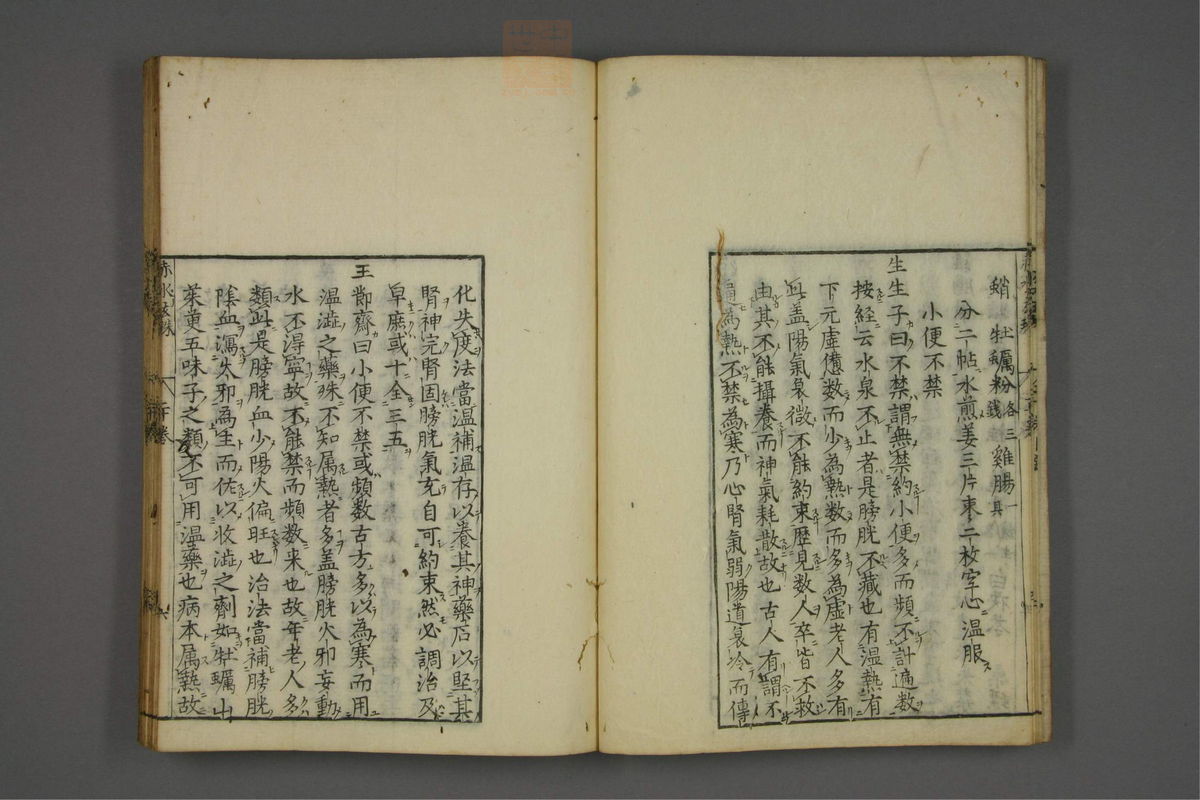 蛸 牡蠣粉各三錢 雞腸一具
分二帖水煎姜三片枣二枚空心温服
小便不禁
生生子曰不禁謂無禁約小便多而頻不計遍数
按経云水泉不止者是膀胱不藏也有温熱有
下元虚憊数而少為熱数而多為虚老人多有
此盖陽氣衰微不能約束歴見数人卒皆不救
由其不能攝養而神氣耗散故也古人有謂不
為熱不禁為寒乃心腎氣弱陽道衰冷而傳
化失度法當温補温存以養其神藥石以堅其
腎神完腎固膀胱氣充自可約束然必調治及
早庶或十全三五
王節齋曰小便不禁或頻数古方多以為寒而用
温澁之藥殊不知属熱者多盖膀胱火邪妄動
水不得寧故不能禁而頻数来也故年老人多
類此是膀胱血少陽火偏旺也治法當補膀胱
陰血瀉火邪為主而佐以收澁之劑如牡蠣山
茱萸五味子之類不可用温藥也病本属熱故